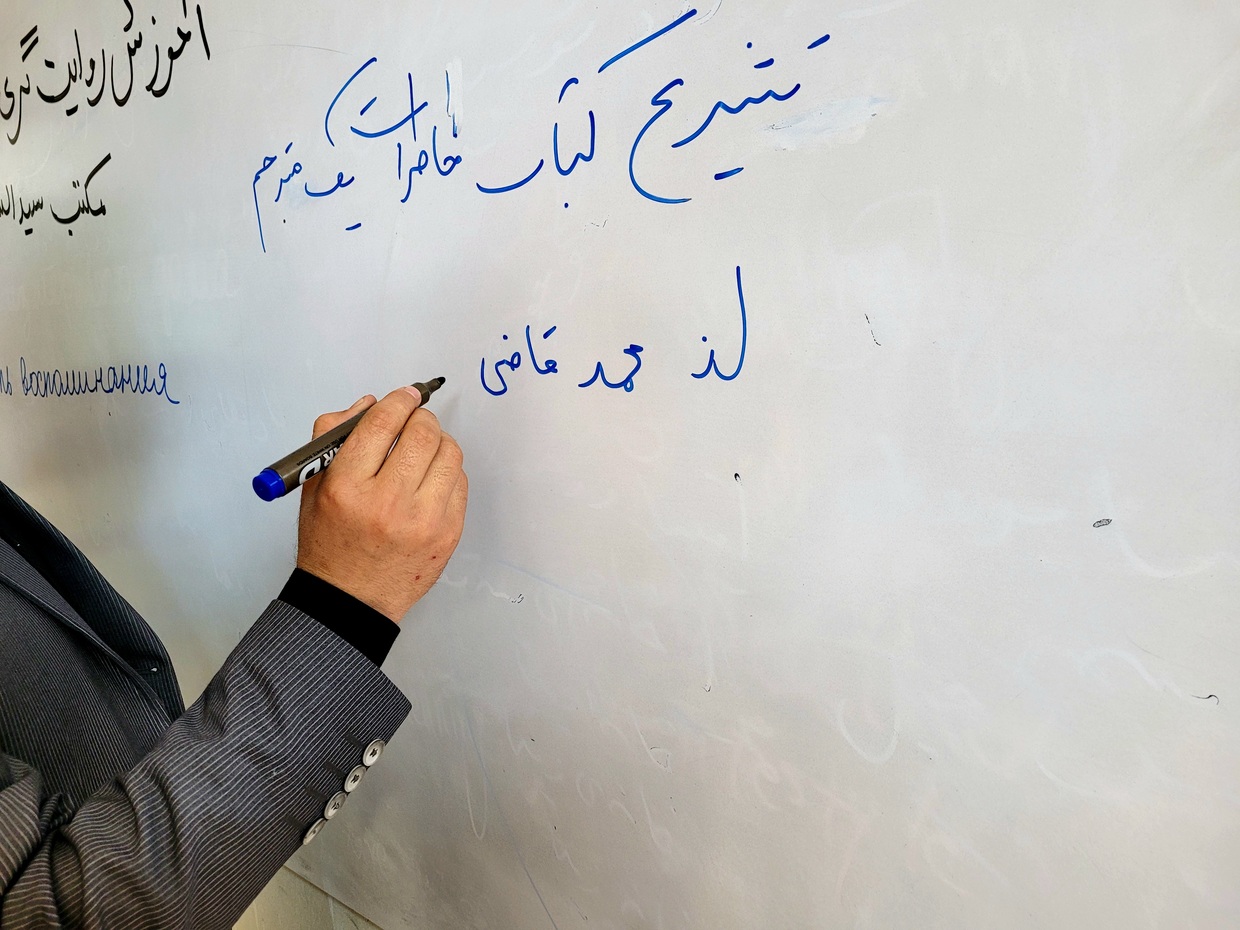 آموزش روایت گری
مکتب سید
воспоминания
تشریح کتاب خاطرات یک مترجم
از محمد قاضی